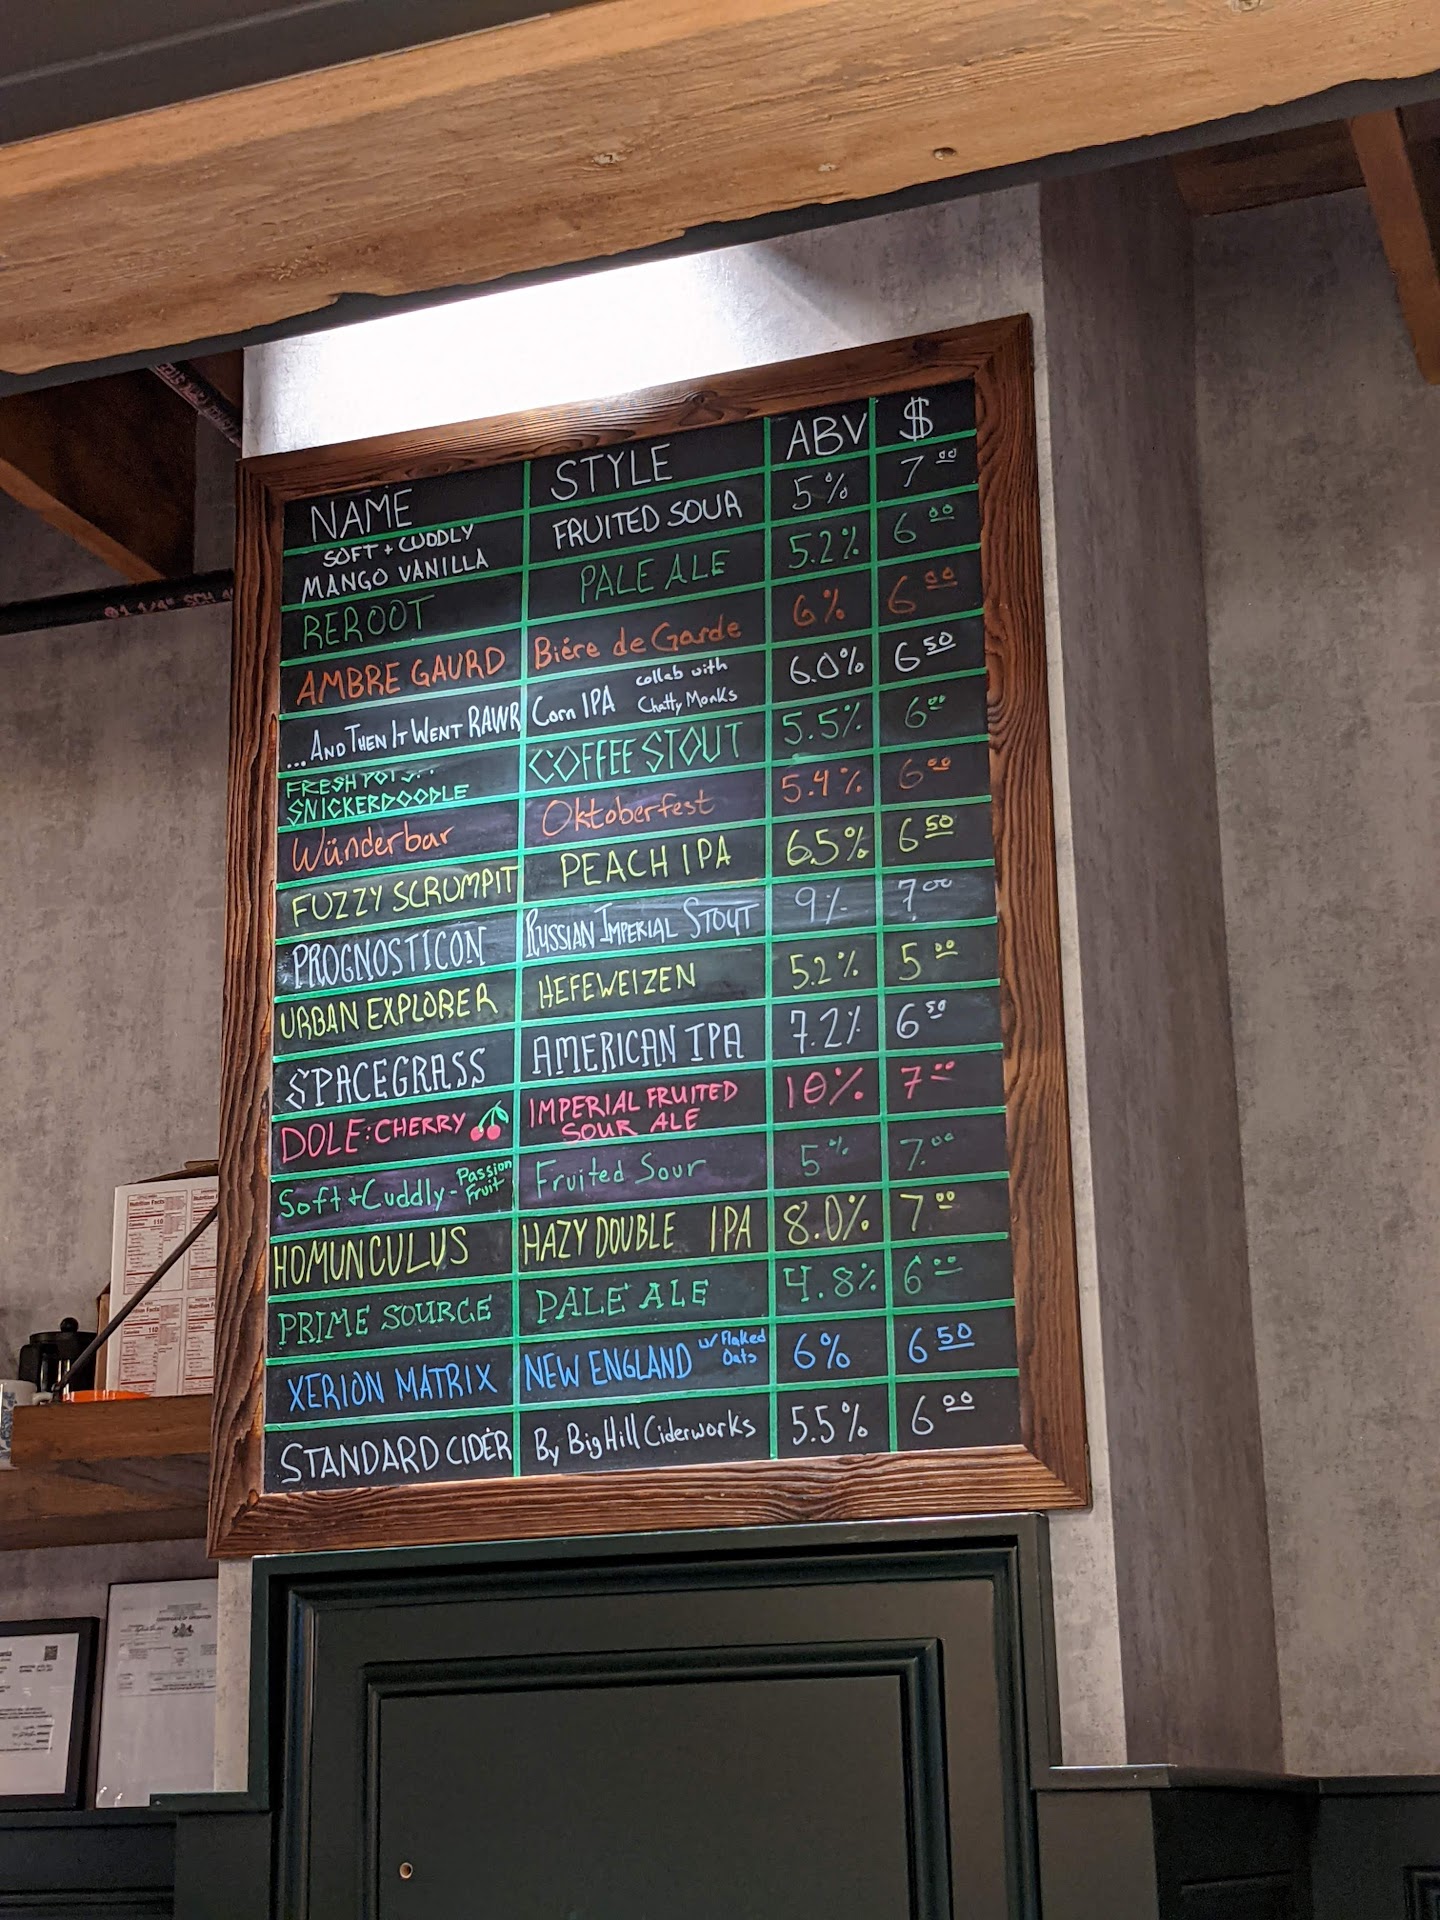 NAME STYLE ABV $
SOFT + CUDDLY
MANGO VANILLA FRUITED SOUR 5% 7.00
REROOT PALE ALE 5.2% 6.00
AMBRE GAURD Biére de Garde 6% 6.00
...AND THEN IT WENT RAWR Corn IPA collab with
Chatty Monks 6.0% 6.50
FRESH POTS...
SNICKERDOODLE COFFEE STOUT 5.5% 6.00
Wünderbar Oktoberfest 5.4% 6.00
FUZZY SCRUMPIT PEACH IPA 6.5% 6.50
PROGNOSTICON RUSSIAN IMPERIAL STOUT 9% 7.00
URBAN EXPLORER HEFEWEIZEN 5.2% 5.00
SPACEGRASS AMERICAN IPA 7.2% 6.50
DOLE: CHERRY IMPERIAL FRUITED
SOUR ALE 10% 7.00
Soft + Cuddly - Passion
Fruit Fruited Sour 5% 7.00
HOMUNCULUS HAZY DOUBLE IPA 8.0% 7.00
PRIME SOURCE PALE ALE 4.8% 6.00
XERION MATRIX NEW ENGLAND w/ Flaked
Oats 6% 6.50
STANDARD CIDER By Big Hill Ciderworks 5.5% 6.00
Nutrition Facts
110